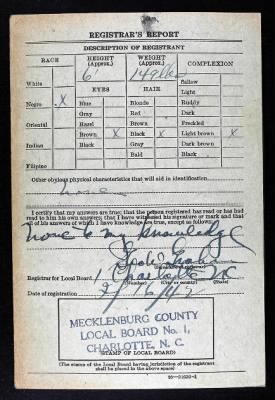 REGISTRAR'S REPORT
DESCRIPTION OF REGISTRANT
RACE HEIGHT (Approx.) WEIGHT (Approx.) COMPLEXION
6' 149 lbs
White Sallow
EYES HAIR Light
Negro X Blue Blonde Ruddy
Gray Red Dark
Oriental Hazel Brown Freckled
Brown X Black X Light brown X
Indian Black Gray Dark brown
Bald Black
Filipino
Other obvious physical characteristics that will aid in identification
none
I certify that my answers are true; that the person registered has read or has had
read to him his own answers; that I have witnessed his signature or mark and that
all of his answers of which I have knowledge are true, except as follows:
none to my knowledge
Registrar for Local Board 1 Charlotte NC
(State)
Date of registration 2/16/42
MECKLENBURG COUNTY
LOCAL BOARD No. 1,
CHARLOTTE, N. C.
(STAMP OF LOCAL BOARD)
(The stamp of the Local Board having jurisdiction of the registrant
shall be placed in the above space)